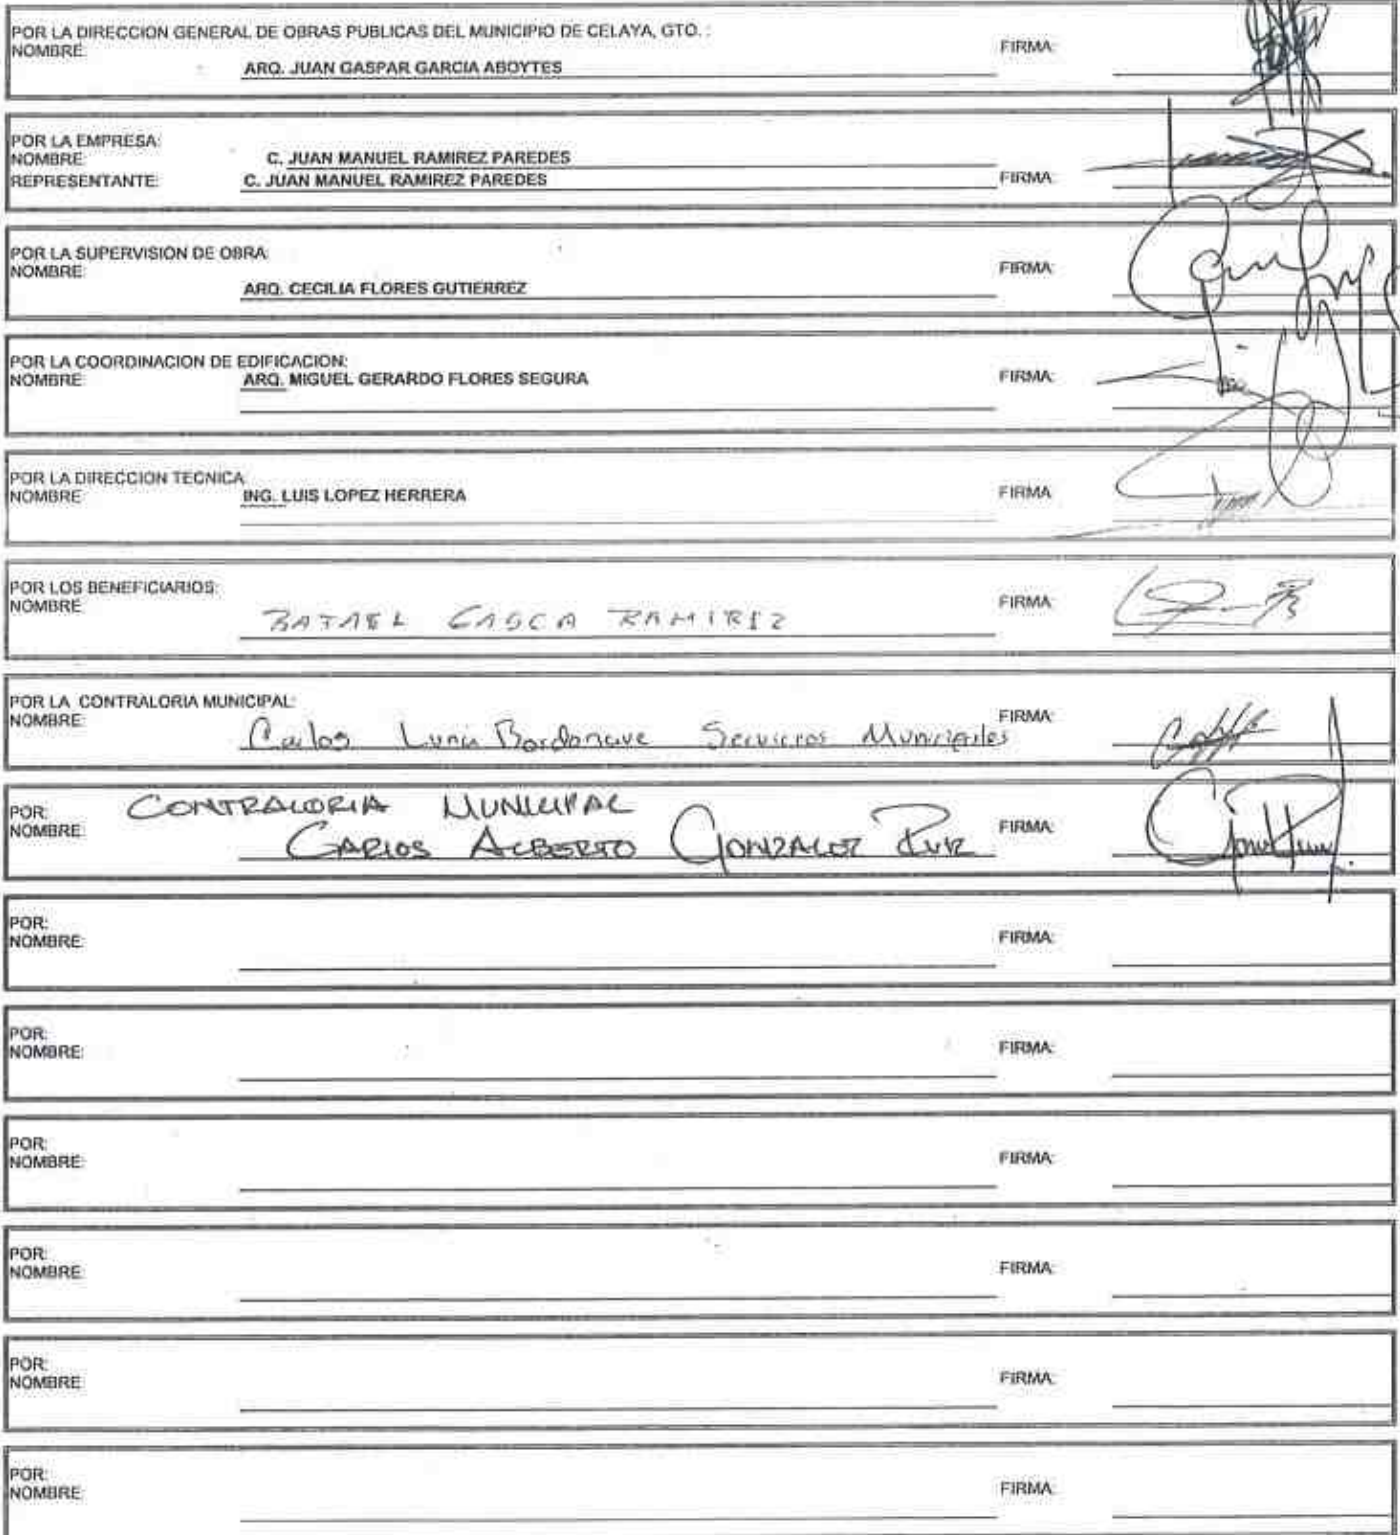 POR LA DIRECCION GENERAL DE OBRAS PUBLICAS DEL MUNICIPIO DE CELAYA, GTO. :
NOMBRE: FIRMA:
ARQ. JUAN GASPAR GARCIA ABOYTES
POR LA EMPRESA:
NOMBRE: C. JUAN MANUEL RAMIREZ PAREDES
REPRESENTANTE: C. JUAN MANUEL RAMIREZ PAREDES FIRMA:
POR LA SUPERVISION DE OBRA:
NOMBRE: FIRMA:
ARQ. CECILIA FLORES GUTIERREZ
POR LA COORDINACION DE EDIFICACION:
NOMBRE: ARQ. MIGUEL GERARDO FLORES SEGURA FIRMA:
POR LA DIRECCION TECNICA
NOMBRE: ING. LUIS LOPEZ HERRERA FIRMA
POR LOS BENEFICIARIOS:
NOMBRE FIRMA:
RAFAEL GASCA RAMIREZ
POR LA CONTRALORIA MUNICIPAL:
NOMBRE: FIRMA:
Carlos Luna Bordonave Servicios Municipales
POR: CONTRALORIA MUNICIPAL
NOMBRE: CARLOS ALBERTO GONZALEZ RUIZ FIRMA:
POR:
NOMBRE: FIRMA:
POR:
NOMBRE: FIRMA:
POR:
NOMBRE: FIRMA:
POR:
NOMBRE: FIRMA:
POR:
NOMBRE: FIRMA:
POR:
NOMBRE: FIRMA: